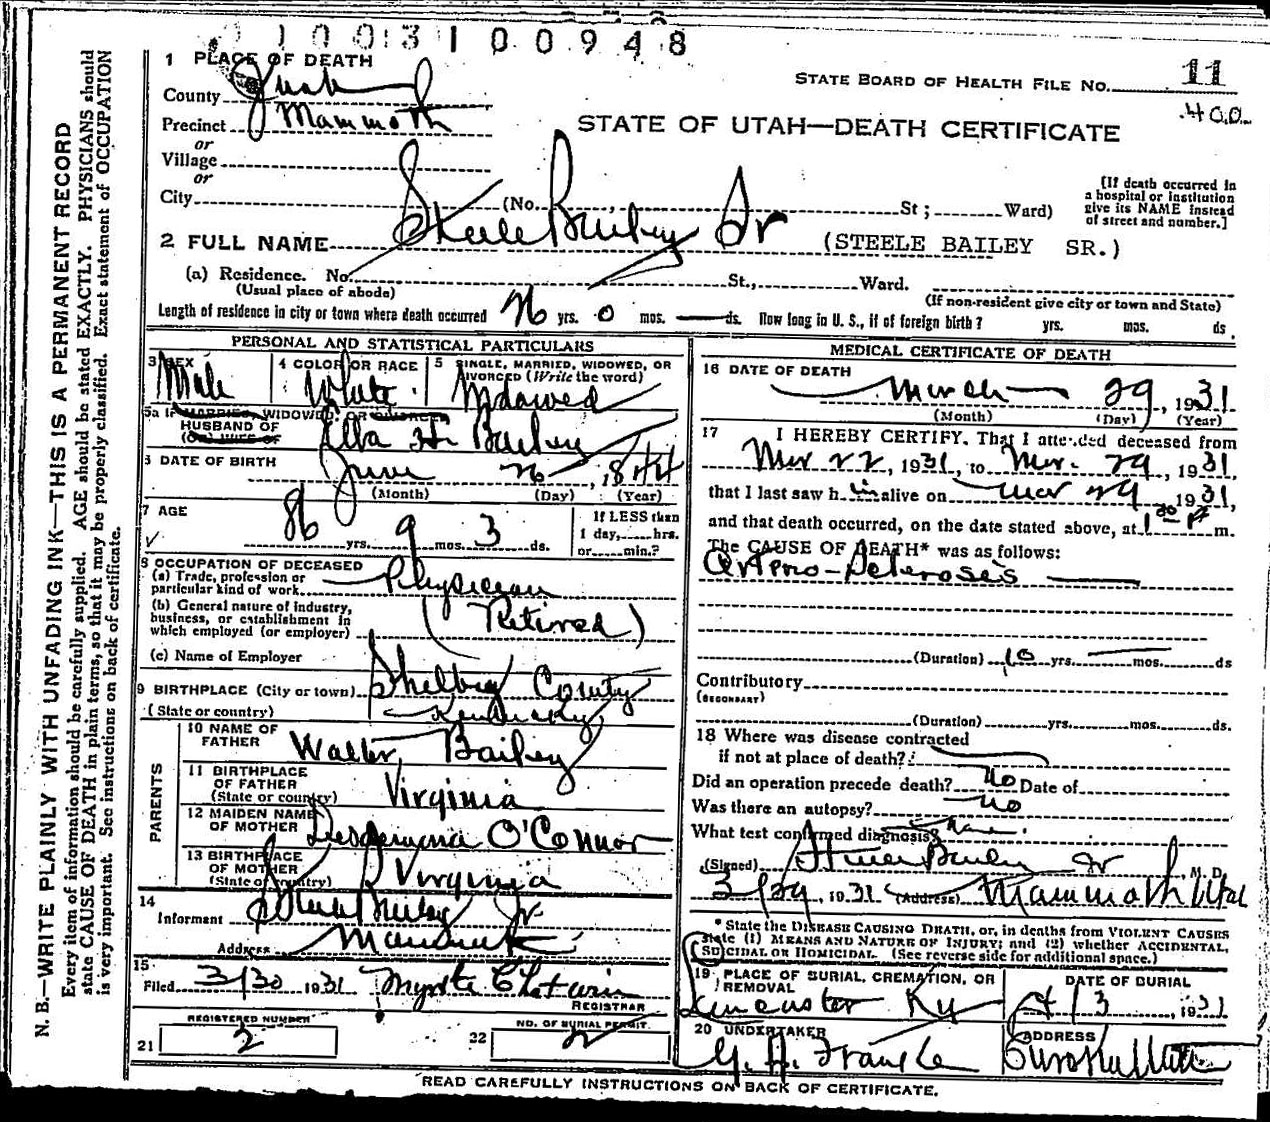 10031 00948
1 PLACE OF DEATH
STATE BOARD OF HEALTH FILE No. 11
County Juab
.400
Precinct Mammoth
STATE OF UTAH—DEATH CERTIFICATE
or
Village
or
City (No. St ; Ward)
[If death occurred in
a hospital or institution
give its NAME instead
of street and number.]
2 FULL NAME Steele Bailey Sr (STEELE BAILEY SR.)
(a) Residence. No. St., Ward.
(Usual place of abode)
(If non-resident give city or town and State)
Length of residence in city or town where death occurred yrs. 0 mos. — ds. How long in U. S., if of foreign birth? yrs. mos. ds.
PERSONAL AND STATISTICAL PARTICULARS
3 SEX
4 COLOR OR RACE
5 SINGLE, MARRIED, WIDOWED, OR
DIVORCED (Write the word)
Male White Widowed
5a IF MARRIED, WIDOWED OR DIVORCED
HUSBAND OF
(OR) WIFE OF
Ella H. Bailey
6 DATE OF BIRTH June 26, 1844
(Month) (Day) (Year)
7 AGE
86 yrs. 9 mos. 3 ds.
If LESS than
1 day, hrs.
or min.?
8 OCCUPATION OF DECEASED
(a) Trade, profession or
particular kind of work Physician
(b) General nature of industry,
business, or establishment in
which employed (or employer) (Retired)
(c) Name of Employer
9 BIRTHPLACE (City or town) Shelby County
(State or country) Kentucky
PARENTS
10 NAME OF
FATHER Walter Bailey
11 BIRTHPLACE
OF FATHER
(State or country) Virginia
12 MAIDEN NAME
OF MOTHER O'Connor
13 BIRTHPLACE
OF MOTHER
(State or country) Virginia
14
Informent Steele Bailey Jr.
Address Mammoth
15
Filed 3/30 1931 Myrtle
REGISTRAR
REGISTERED NUMBER
21 2
NO. OF BURIAL PERMIT
22 2
MEDICAL CERTIFICATE OF DEATH
16 DATE OF DEATH
March 29, 1931
(Month) (Day) (Year)
17 I HEREBY CERTIFY, That I attended deceased from
Mar 22, 1931, to Mar. 29, 1931,
that I last saw h im alive on Mar 29, 1931,
and that death occurred, on the date stated above, at 1 30 P m.
The CAUSE OF DEATH* was as follows:
Arterio-Sclerosis
(Duration) 10 yrs. mos. ds
Contributory
(SECONDARY)
(Duration) yrs. mos. ds.
18 Where was disease contracted
if not at place of death?
Did an operation precede death? No Date of
Was there an autopsy? No
What test confirmed diagnosis? None.
(Signed) Steele Bailey Jr M. D.
3/29, 1931 (Address) Mammoth Utah
* State the DISEASE CAUSING DEATH, or, in deaths from VIOLENT CAUSES
state (1) MEANS AND NATURE OF INJURY; and (2) whether ACCIDENTAL,
SUICIDAL OR HOMICIDAL. (See reverse side for additional space.)
19 PLACE OF BURIAL, CREMATION, OR
REMOVAL
DATE OF BURIAL
Lancaster Ky 4/3, 1931
20 UNDERTAKER
ADDRESS
Eureka Utah
READ CAREFULLY INSTRUCTIONS ON BACK OF CERTIFICATE.
N. B.—WRITE PLAINLY WITH UNFADING INK—THIS IS A PERMANENT RECORD
Every item of information should be carefully supplied. AGE should be stated EXACTLY. PHYSICIANS should
state CAUSE OF DEATH in plain terms, so that it may be properly classified. Exact statement of OCCUPATION
is very important. See instructions on back of certificate.